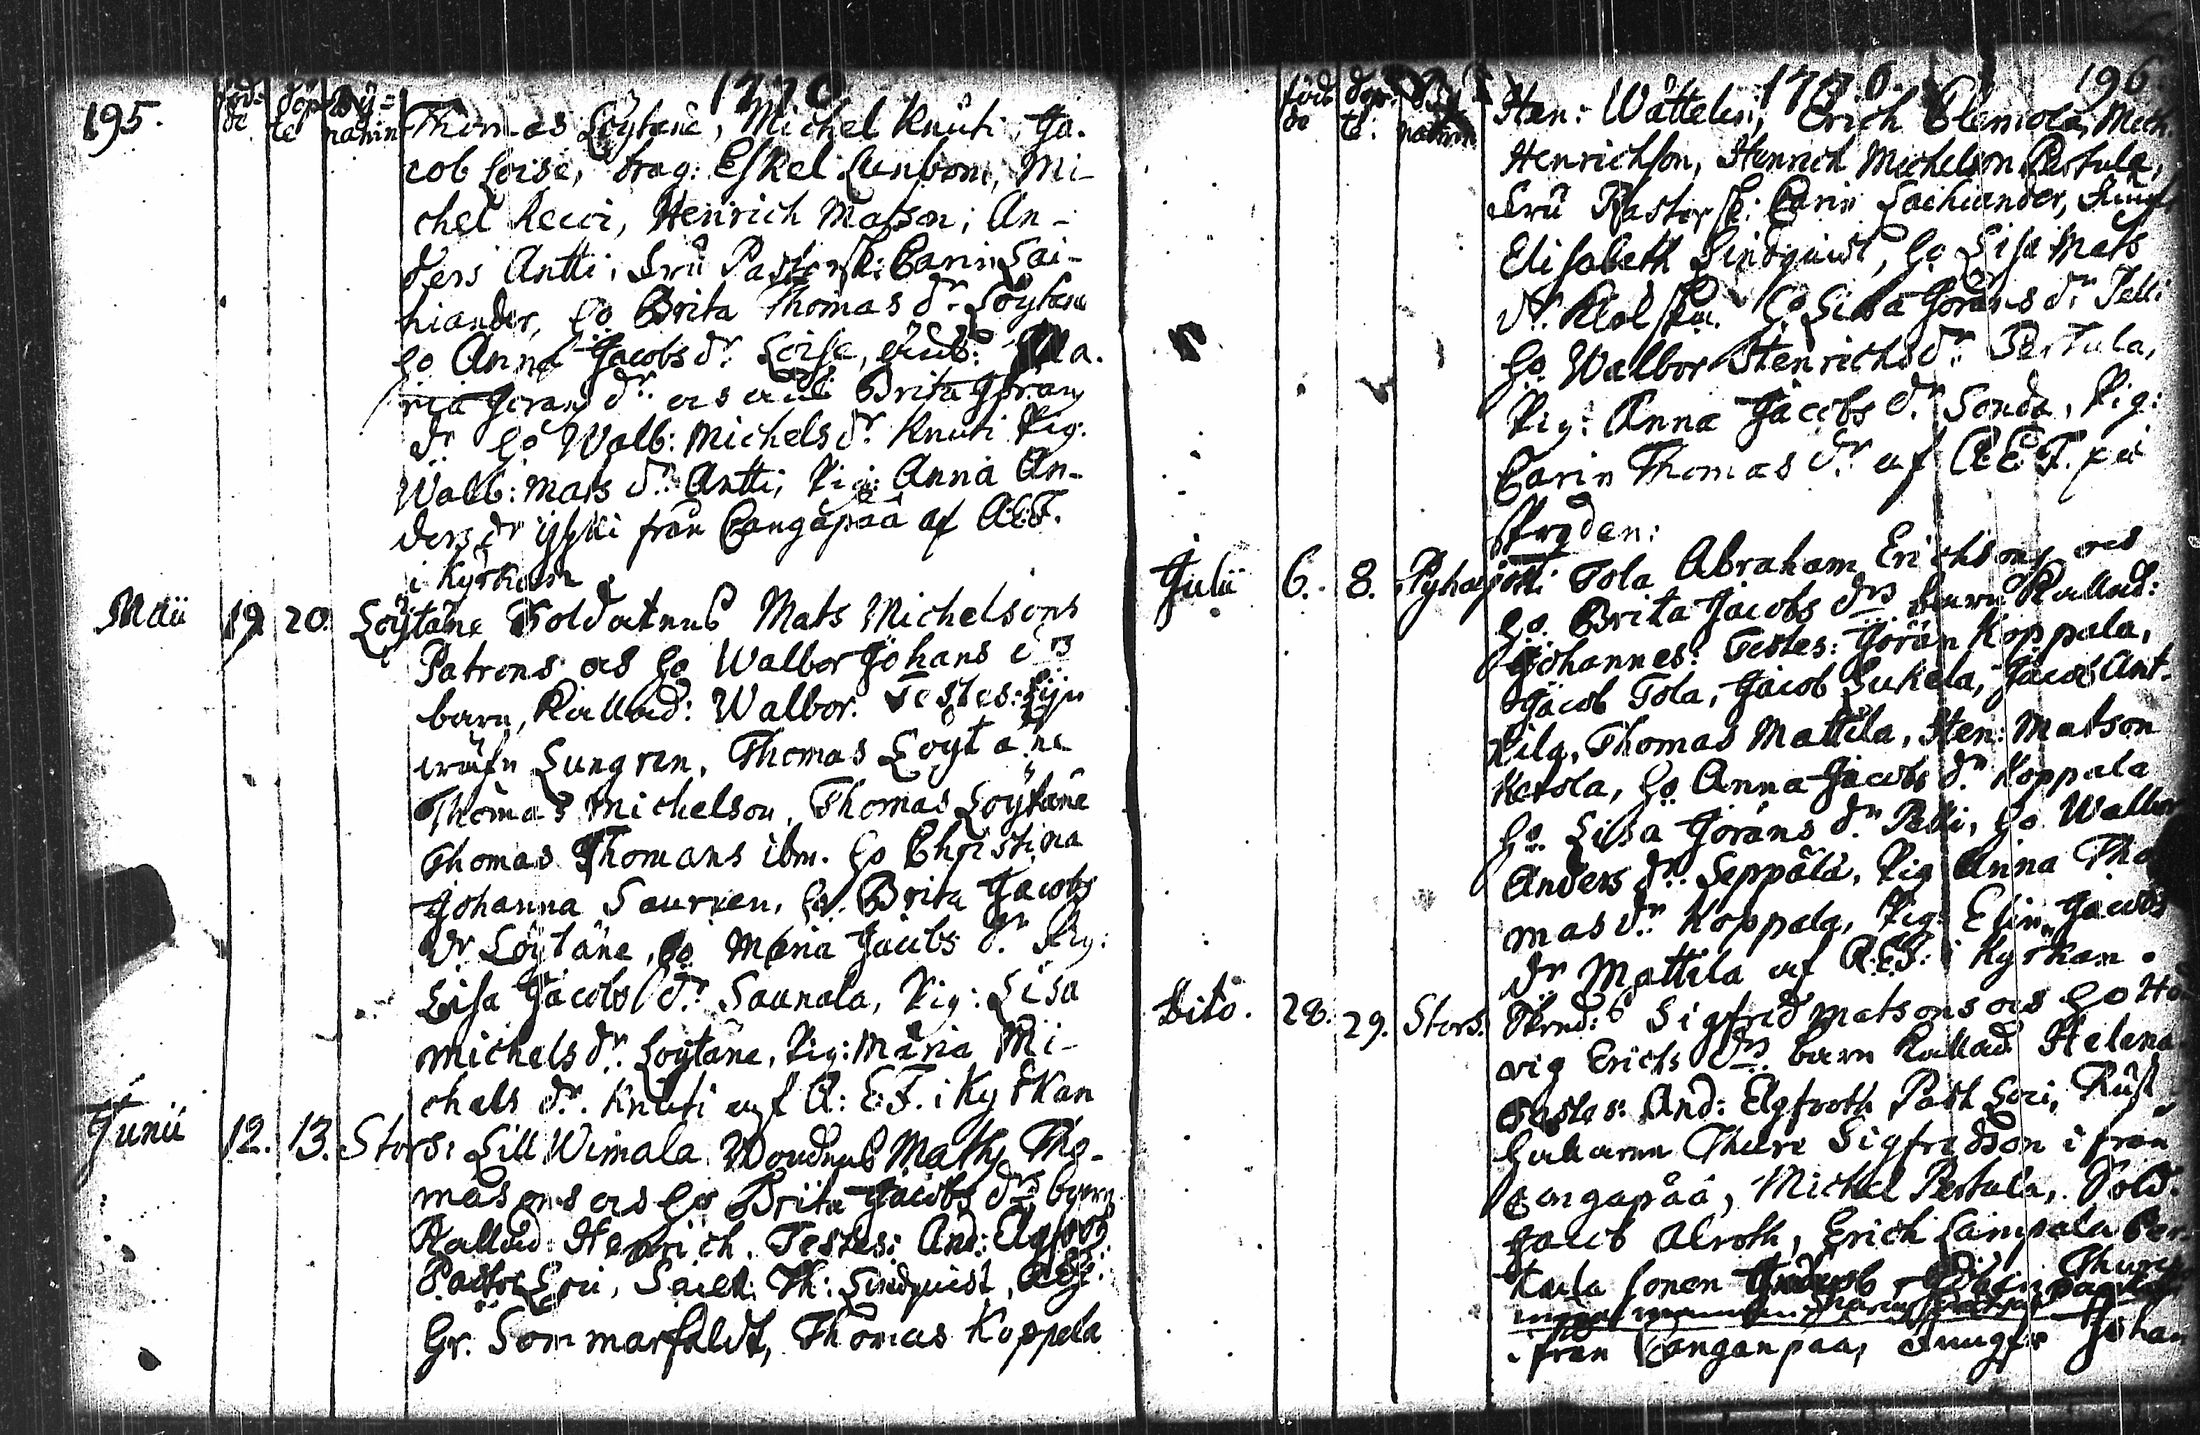 195.
1770
födde döpte Bynamn
Thomas Löytäne, Michel Knuti, Ja-
cob Loise, drag: Eskel Lunbom, Mi-
chel Recci, Henrich Matson, An-
ders Antti, Fru Pastorsk: Carin Lai-
hiander, ho Brita Thomas dr Löytäne
ho Anna Jacobs dr Loise,
ria Göran dr Brita Göran
dr ho Walb: Michels dr Knuti Pig:
Walb: Mats dr Antti, Pig: Anna An-
ders dr från Cangåpää af A.E.F.
i Kyrkan
Maii 19 20. Löytäne Soldatens Mats Michelsons
Patrons och ho Walbor Johans drs
barn, Kallad: Walbor. Testes:
Lungren, Thomas Löytäne
Thomas Michelson, Thomas Löytäne
Thomas Thomans ibm. ho Christina
Johanna Saurren, ho Brita Jacobs
dr Löytäne, ho Maria Jacobs dr Pig:
Lisa Jacobs dr Saunala, Pig: Lisa
Michels dr Löytäne, Pig: Maria Mi-
chels dr. Knuti af A: E.F. i Kyrkan
Junii 12. 13. Stors: Lill Wimala Mats Tho-
masons och ho Brita Jacobs drs barn
Kallad: Henrich. Testes: And: Elgfoot
Pastor Loci, Th: Lindquist,
Gr. Sommarfeldt, Thomas Koppela
1770. 196.
födde döpte namn
Hen: Wättelin, Erich Clemola, Mich:
Henrichson, Henrich Michelson Pertula,
Fru Pastorsk: Carin Laihiander, Jungf
Elisabeth Lindquist, ho Lisa Mats
dr. ho Lisa Görans dr Pelli
ho Walbor Henrichs dr Pertula,
Pig: Anna Jacobs dr Sonda, Pig:
Carin Thomas dr af A.E.F. på
Julii 6. 8. Pyhäjotti Tola Abraham Erichsons och
ho Brita Jacobs drs barn Kallad:
Johannes: Testes: Görän Koppala,
Jacob Tola, Jacob Sukela, Jacob Ant-
tila, Thomas Mattila, Hen: Matson
Kerola, ho Anna Jacobs dr Koppala
ho Lisa Görans dr Pelli, ho Walbor
Anders dr Seppälä, Pig Anna Tho
mas dr Koppala, Pig: Elin Jacobs
dr Mattila af A.E.F. i Kyrkan.
Dito. 28. 29. Stors. Sigfred Matsons och ho Hed
vig Erichs drs barn Kallad Helena
Testes: And: Elgfooth Past Loci, Rust
hållaren Thure Sigfredson ifrån
Cangapää, Michel Pertula, Sold.
Jacob Alroth, Erich Lampala
ifrån Canganpää, Jungfr Johan